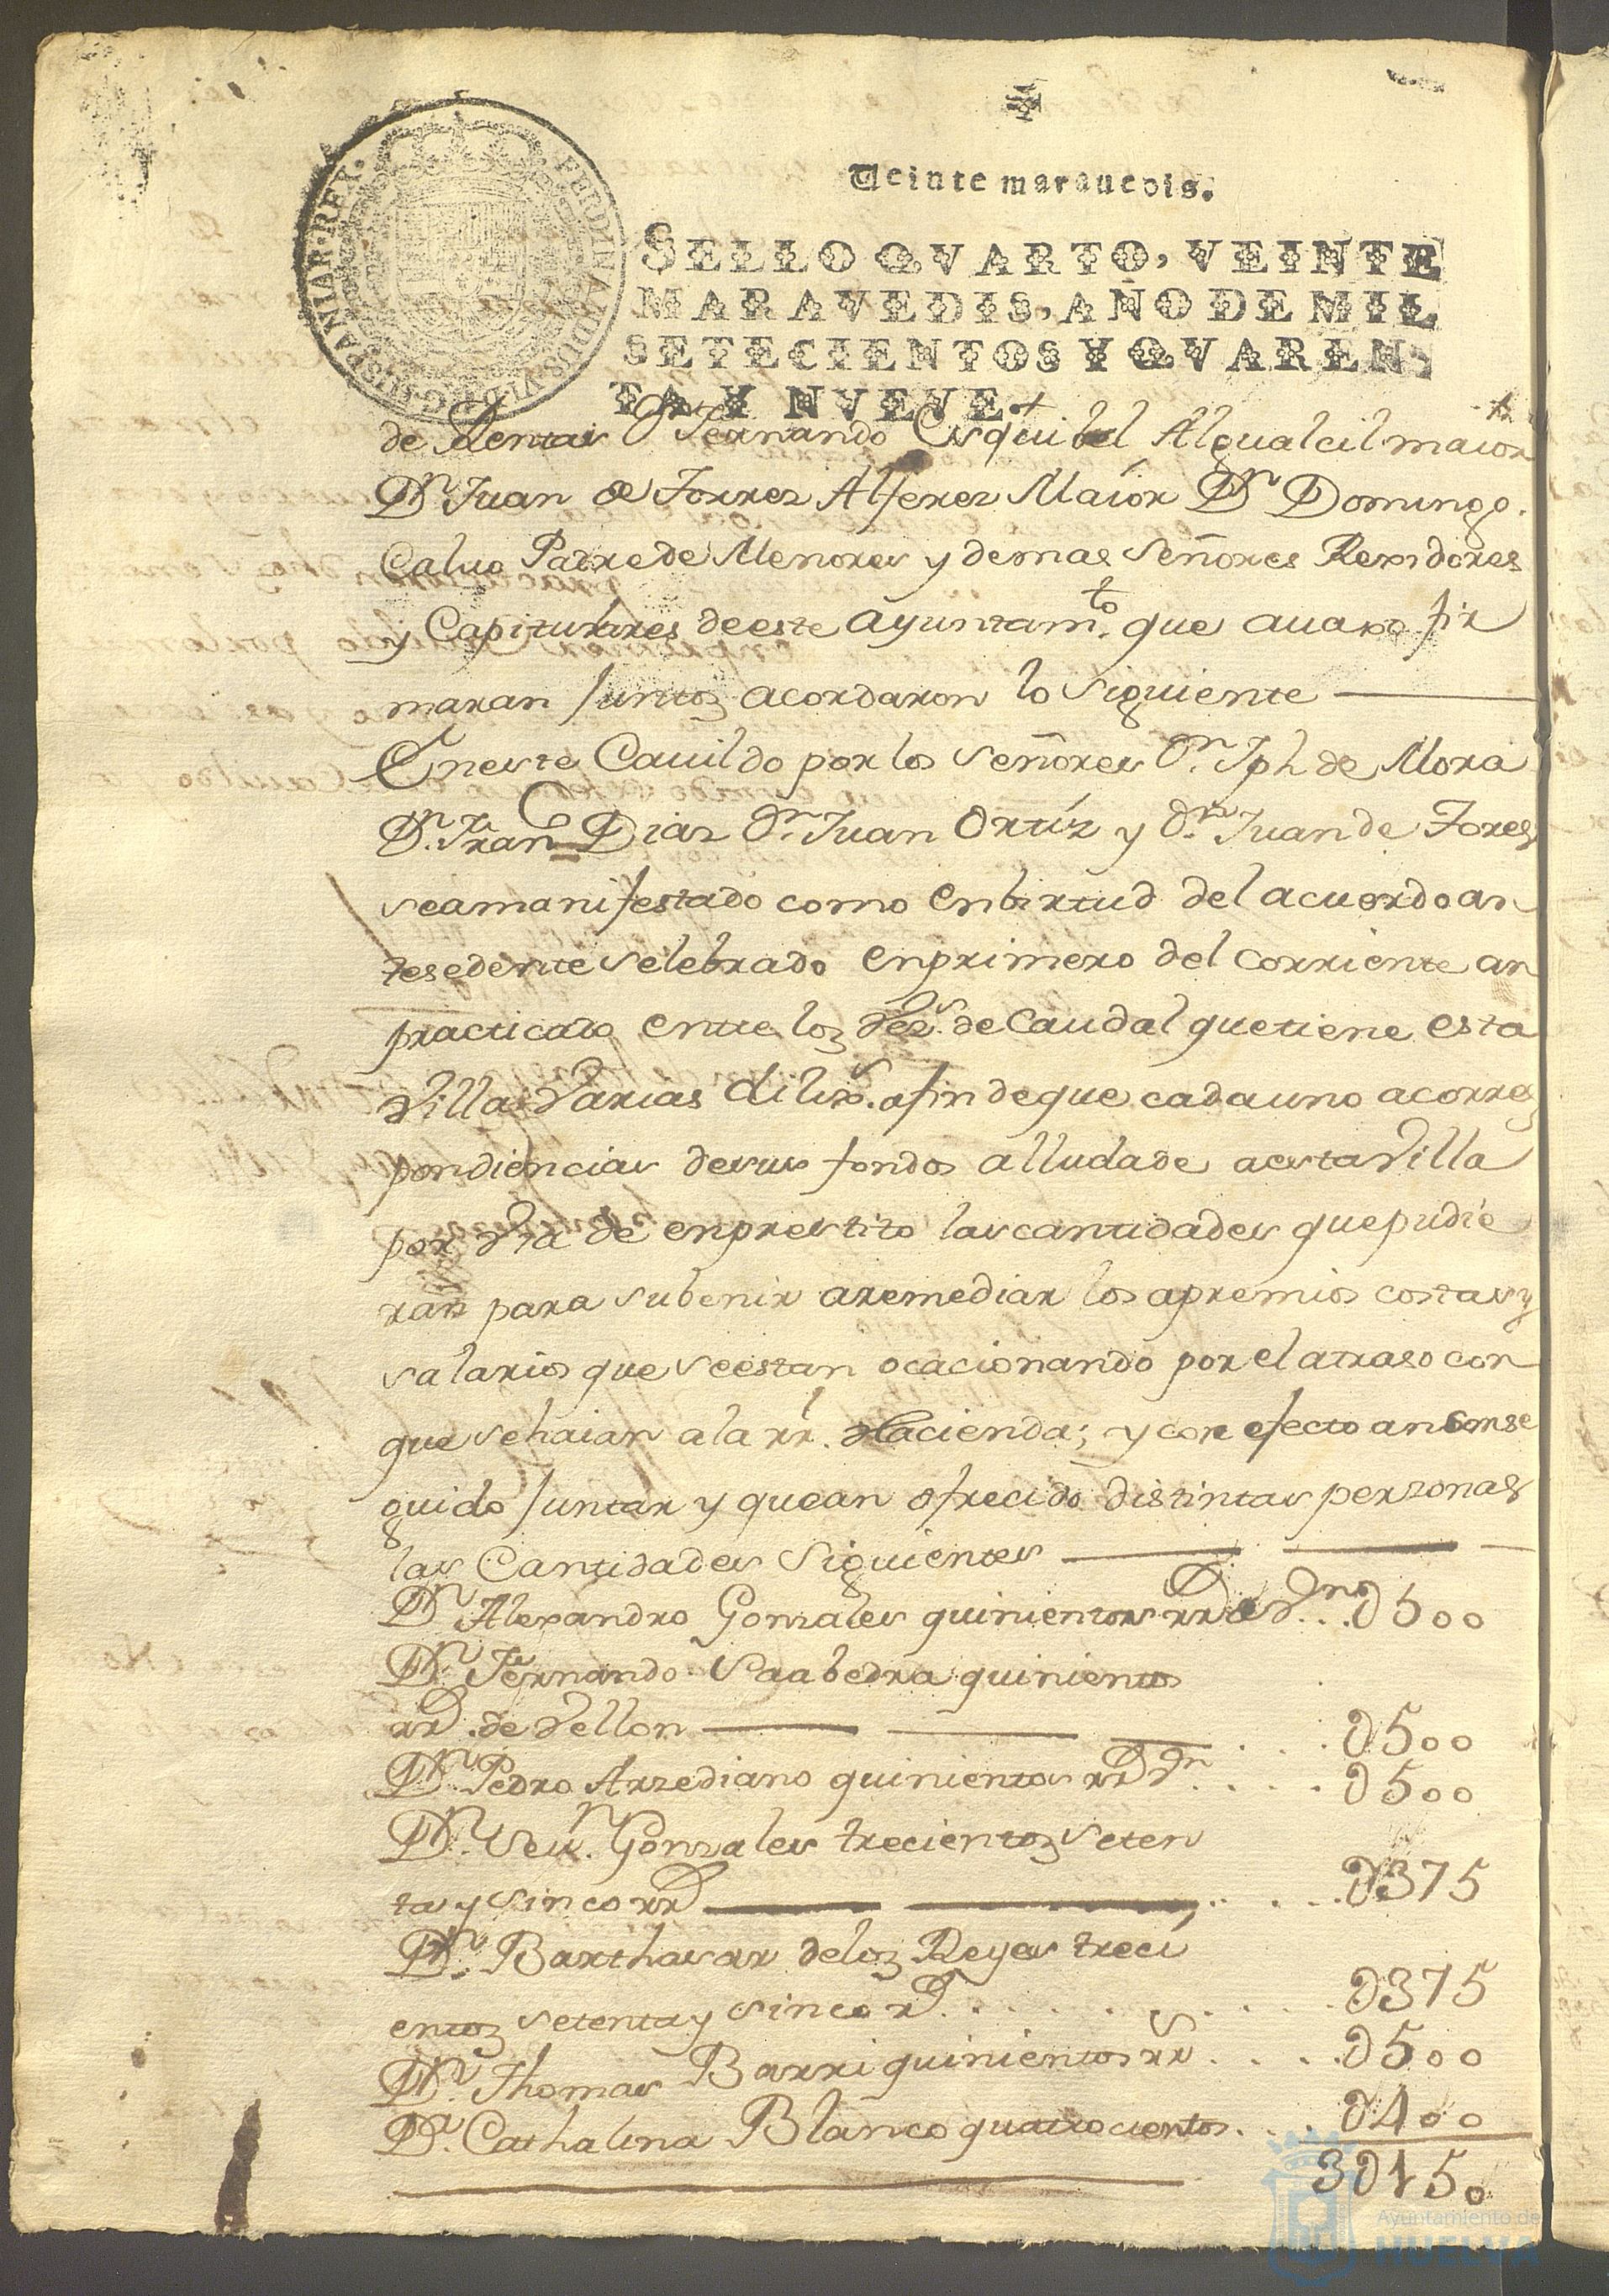 Veinte marauedis.
SELLO QVARTO, VEINTE
MARAVEDIS, AÑO DE MIL
SETECIENTOS Y QVAREN-
TA Y NVEVE.
FERDINANDUS·VI·D·G·HISPANIAR·REX·
de Rentas Dn Fernando Esquibel Algualcil maior
Dn Juan de Torres Alferes Maíor Dn Domingo
Caluo Padre de Menores y demas Señores Rexidores
y Capitulares de este Ayuntamto. que auaxo fir
maran Juntos acordaron lo siguiente
En este Cauildo por los Señores Dn. Jph de Mora
Dn. Franco Dias Dn. Juan Ortíz y Dn. Juan de Tores
seamanifestado como Enbirtud del acuerdo an
tesedente selebrado Enprimero del Corriente an
practicado entre los Vezs. de Caudal que tiene esta
Villa Varias dilixs. afin de que cada uno a corres
pondiencias de sus fondos alludade a esta Villa
por Via de enprestito las cantidades que pudie
ran para subenir a remediar los apremios costas y
salarios que se estan ocacionando por el atraso con
que se haian a la rl. Hacienda; y con efecto an conse
guido Juntar y quean ofrecido distintas personas
las Cantidades Siguientes
Dn Alexandro Gonzales quinientos rrs de Vn. .. D500
Dn. Fernando Saabedra quinientos
rrs. de Vellon . . . D500
Dn Pedro Arzediano quinientos rrs Vn . . . . D500
Dn. Sen. Gonzales trecientos seten
ta y sinco rrs . . . . D375
Dn. Barthasar de los Reyes treci
entos setenta y sinco rs. . . . . . . . D375
Dn. Thomas Barri quinientos rrs . . . . D500
Da. Cathalina Blanco quatrocientos. . . . D400
3D150
Ayuntamiento de
HUELVA